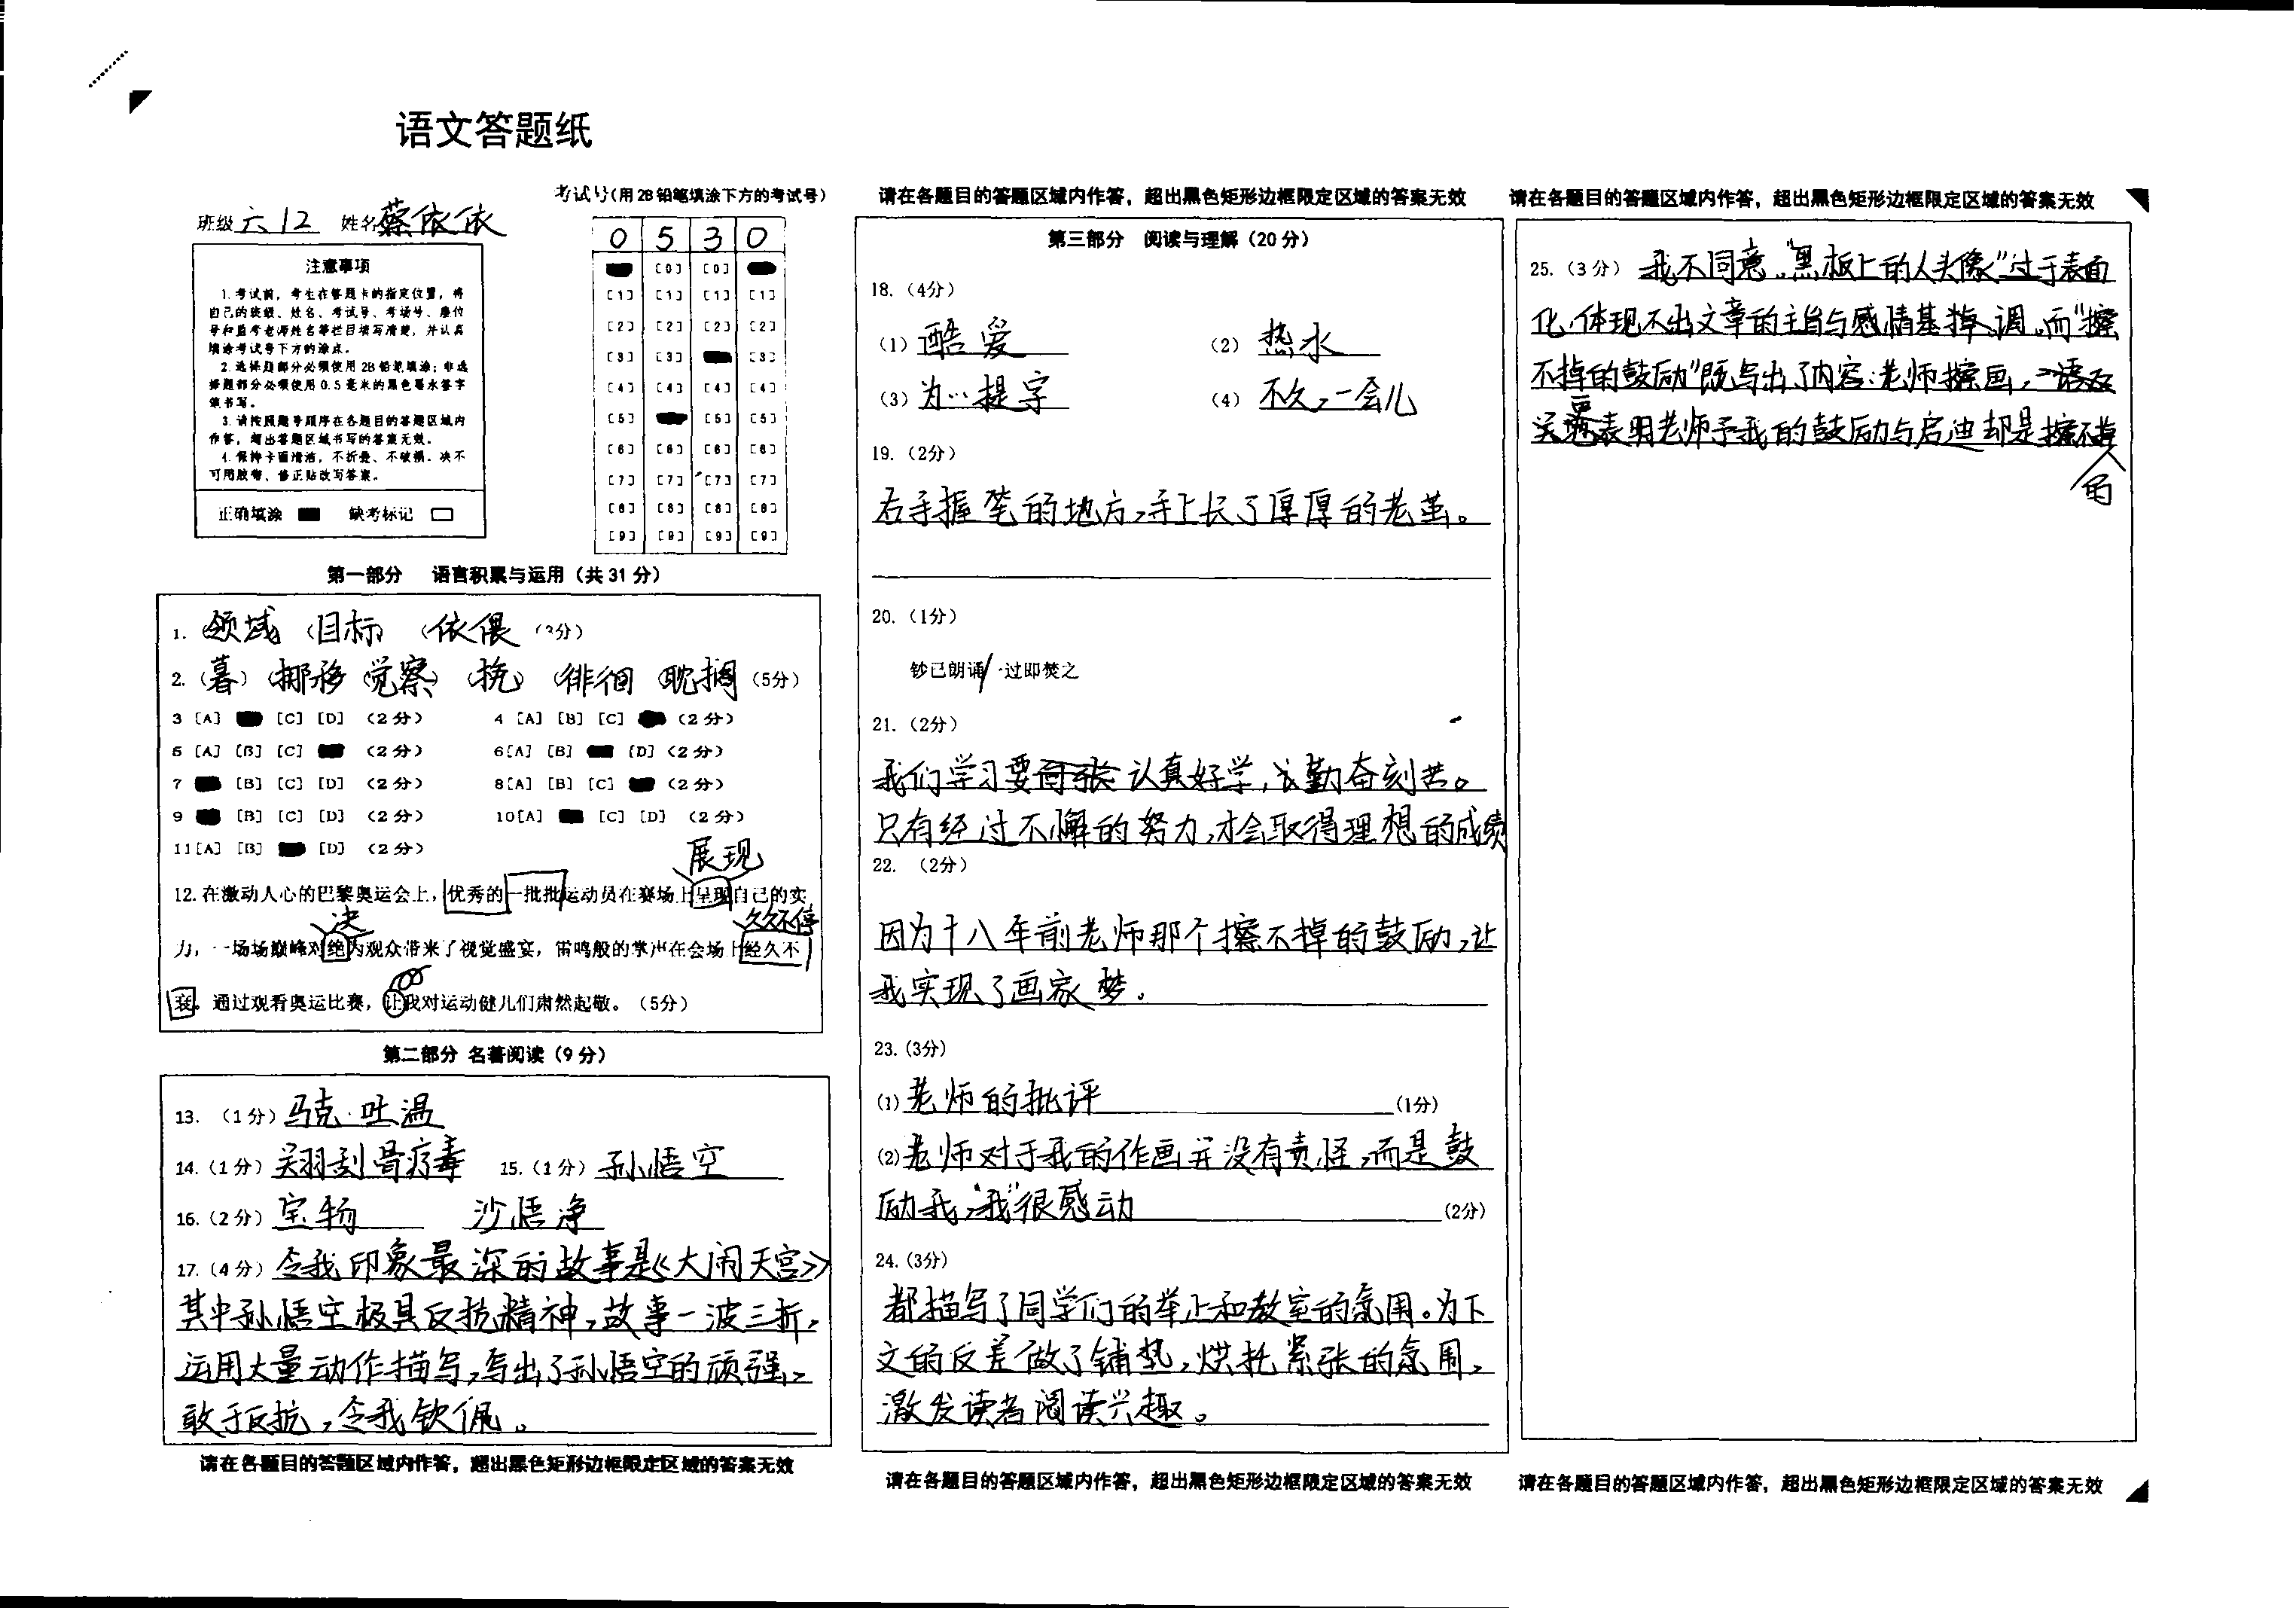 语文答题纸
班级 六12 姓名 蔡依依
考试号(用2B铅笔填涂下方的考试号)
0 5 3 0
[0] [0]
[1] [1] [1] [1]
[2] [2] [2] [2]
[3] [3] [3]
[4] [4] [4] [4]
[5] [5] [5]
[6] [6] [6] [6]
[7] [7] [7] [7]
[8] [8] [8] [8]
[9] [9] [9] [9]
注意事项
1.考试前，考生在答题卡的指定位置，将
自己的班级、姓名、考试号、考场号、座位
号和监考老师姓名等栏目填写清楚，并认真
填涂考试号下方的涂点。
2.选择题部分必须使用2B铅笔填涂；非选
择题部分必须使用0.5毫米的黑色墨水签字
笔书写。
3.请按照题号顺序在各题目的答题区域内
作答，超出答题区域书写的答案无效。
4.保持卡面清洁，不折叠、不破损。决不
可用胶带、修正贴改写答案。
正确填涂 缺考标记
第一部分 语言积累与运用（共31分）
1. (领域) (目标) (依偎) (3分)
2. (暮) (挪移) (觉察) (挠) (徘徊) (耽搁) (5分)
3 [A] [C] [D] (2分) 4 [A] [B] [C] (2分)
5 [A] [B] [C] (2分) 6[A] [B] [D] (2分)
7 [B] [C] [D] (2分) 8[A] [B] [C] (2分)
9 [B] [C] [D] (2分) 10[A] [C] [D] (2分)
11[A] [B] [D] (2分)
展现
12.在激动人心的巴黎奥运会上，优秀的一批批运动员在赛场上呈现自己的实
决 久久不停
力，一场场巅峰对绝为观众带来了视觉盛宴，雷鸣般的掌声在会场上经久不
衰。通过观看奥运比赛，让我对运动健儿们肃然起敬。（5分）
第二部分 名著阅读（9分）
13.（1分）马克·吐温
14.（1分）关羽刮骨疗毒 15.（1分）孙悟空
16.（2分）宝物 沙悟净
17.（4分）令我印象最深的故事是《大闹天宫》
其中孙悟空极具反抗精神，故事一波三折，
运用大量动作描写，写出了孙悟空的顽强，
敢于反抗，令我钦佩。
请在各题目的答题区域内作答，超出黑色矩形边框限定区域的答案无效
请在各题目的答题区域内作答，超出黑色矩形边框限定区域的答案无效
第三部分 阅读与理解（20分）
18.（4分）
（1）酷爱 （2）热水
（3）为…提字 （4）不久，一会儿
19.（2分）
右手握笔的地方，手上长了厚厚的老茧。
20.（1分）
钞已朗诵/一过即焚之
21.（2分）
我们学习要认真好学，勤奋刻苦。
只有经过不懈的努力，才会取得理想的成绩
22.（2分）
因为十八年前老师那个擦不掉的鼓励，让
我实现了画家梦。
23.(3分)
(1)老师的批评 (1分)
(2)老师对于我的作画并没有责怪，而是鼓
励我，“我”很感动 (2分)
24.(3分)
都描写了同学们的举止和教室的氛围。为下
文的反差做了铺垫，烘托紧张的氛围，
激发读者阅读兴趣。
请在各题目的答题区域内作答，超出黑色矩形边框限定区域的答案无效
请在各题目的答题区域内作答，超出黑色矩形边框限定区域的答案无效
25.（3分）我不同意。“黑板上的人头像”过于表面
化，体现不出文章的主旨与感情基调。而“擦
不掉的鼓励”既写出了内容：老师擦画，一语双
关，表明老师予我的鼓励与启迪却是擦不掉
的
请在各题目的答题区域内作答，超出黑色矩形边框限定区域的答案无效